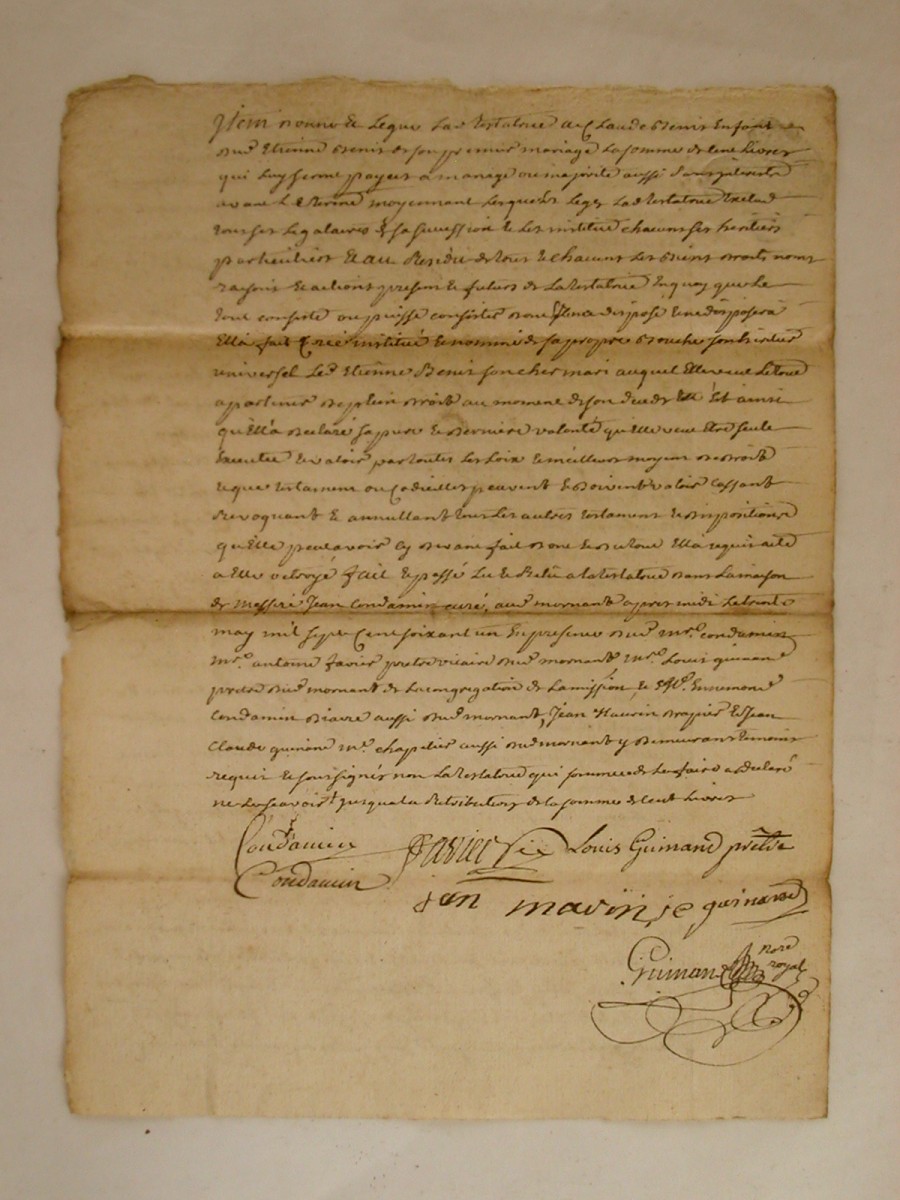 Item donne & Legue Lad testatrice a Claude Benir Enfant
dud Etienne Benir de son premier mariage La somme de Cent Livres
qui luy seront payees a mariage ou majorité aussi sans interets
avant Le terme moyennant Lesquels Legs Lad testatrice Exclud
tous ses Legataires de sa succession & Les institue chacuns ses heritiers
particuliers Et au Residu de tous & chacuns Les Biens droits noms
raisons & actions presents & futurs de La testatrice En quoy que Le
tout consiste ou puisse consister dont Elle n'a disposé & ne disposera
Ella fait Créé institué & nommé de sa propre Bouche son heritier
universel Led Etienne Benir son cher mari auquel Elle veut Le tout
apartenir de plein droit au moment de son deceds d'Elle Et ainsi
qu'Ella declaré sa pure & derniere volonté qu'Elle veut Etre seule
Executée & valoir par toutes Les Loix & meilleurs moyens de droit
& que testament ou Codicilles peuvent & doivent valoir Cassant
Revoquant & annullant tous Les autres testament & dispositions
qu'Elle peut avoir cy devant fait dont & du tout Ella requis acte
a Elle octroyé fait & passé Lu & Relu a La testatrice dans La maison
de Messire Jean Condamin curé, aud mornant apres midi Le trente
may mil sept Cent soixant un En presence dud Mre condamin
Mre antoine favier pretre vicaire dud mornant Mre Louis guinand
pretre dud mornant de La congregation de La mission, & Ennemond
Condamin diacre aussi dud mornant, Jean Mavrin drapier & Jean
Claude guinand Me chapelier aussi dud mornant y demeurants temoins
requis & soussignés non La testatrice qui sommée de Le faire a declaré
ne Le scavoir jusqua La Retribution de La somme de Cent Livres
Condamin favier Vic Louis Guinand prêtre
Condamin
jan mavrin, je guinand
Guinand nore
royal